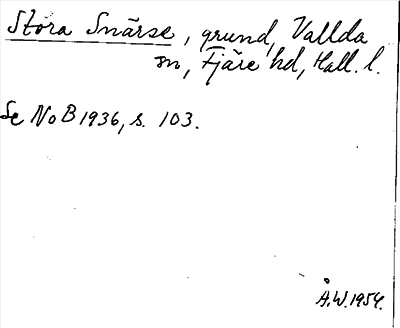 Stora Snärse, grund, Vallda
sn, Fjäre hd, Hall. l.
Se NoB 1936, s. 103.
Å.W. 1954.